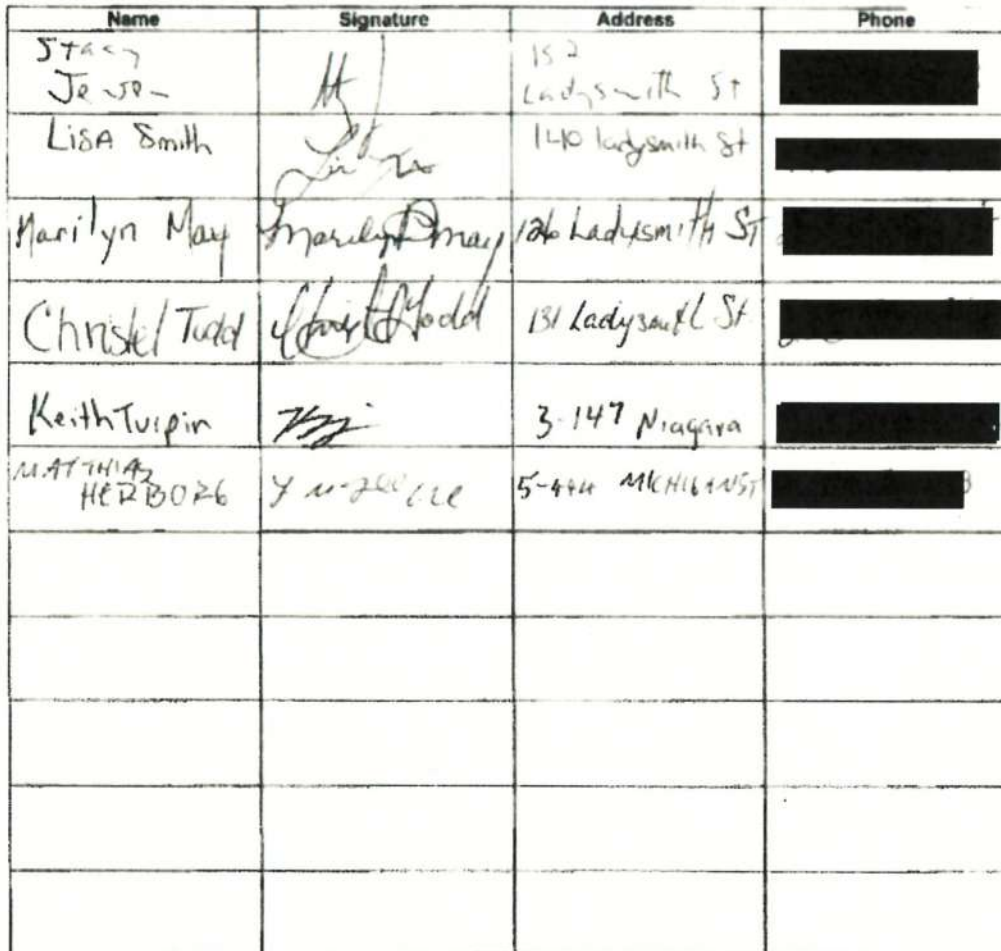 Name Signature Address Phone
Stacy
Ladysmith St
Lisa Smith 140 ladysmith St
Marilyn May Marilyn May 126 Ladysmith St
Christel Todd 131 Ladysmith St.
Keith Turpin 3-147 Niagara
MATTHIAS
HERBORG 5-444 MICHIGAN ST